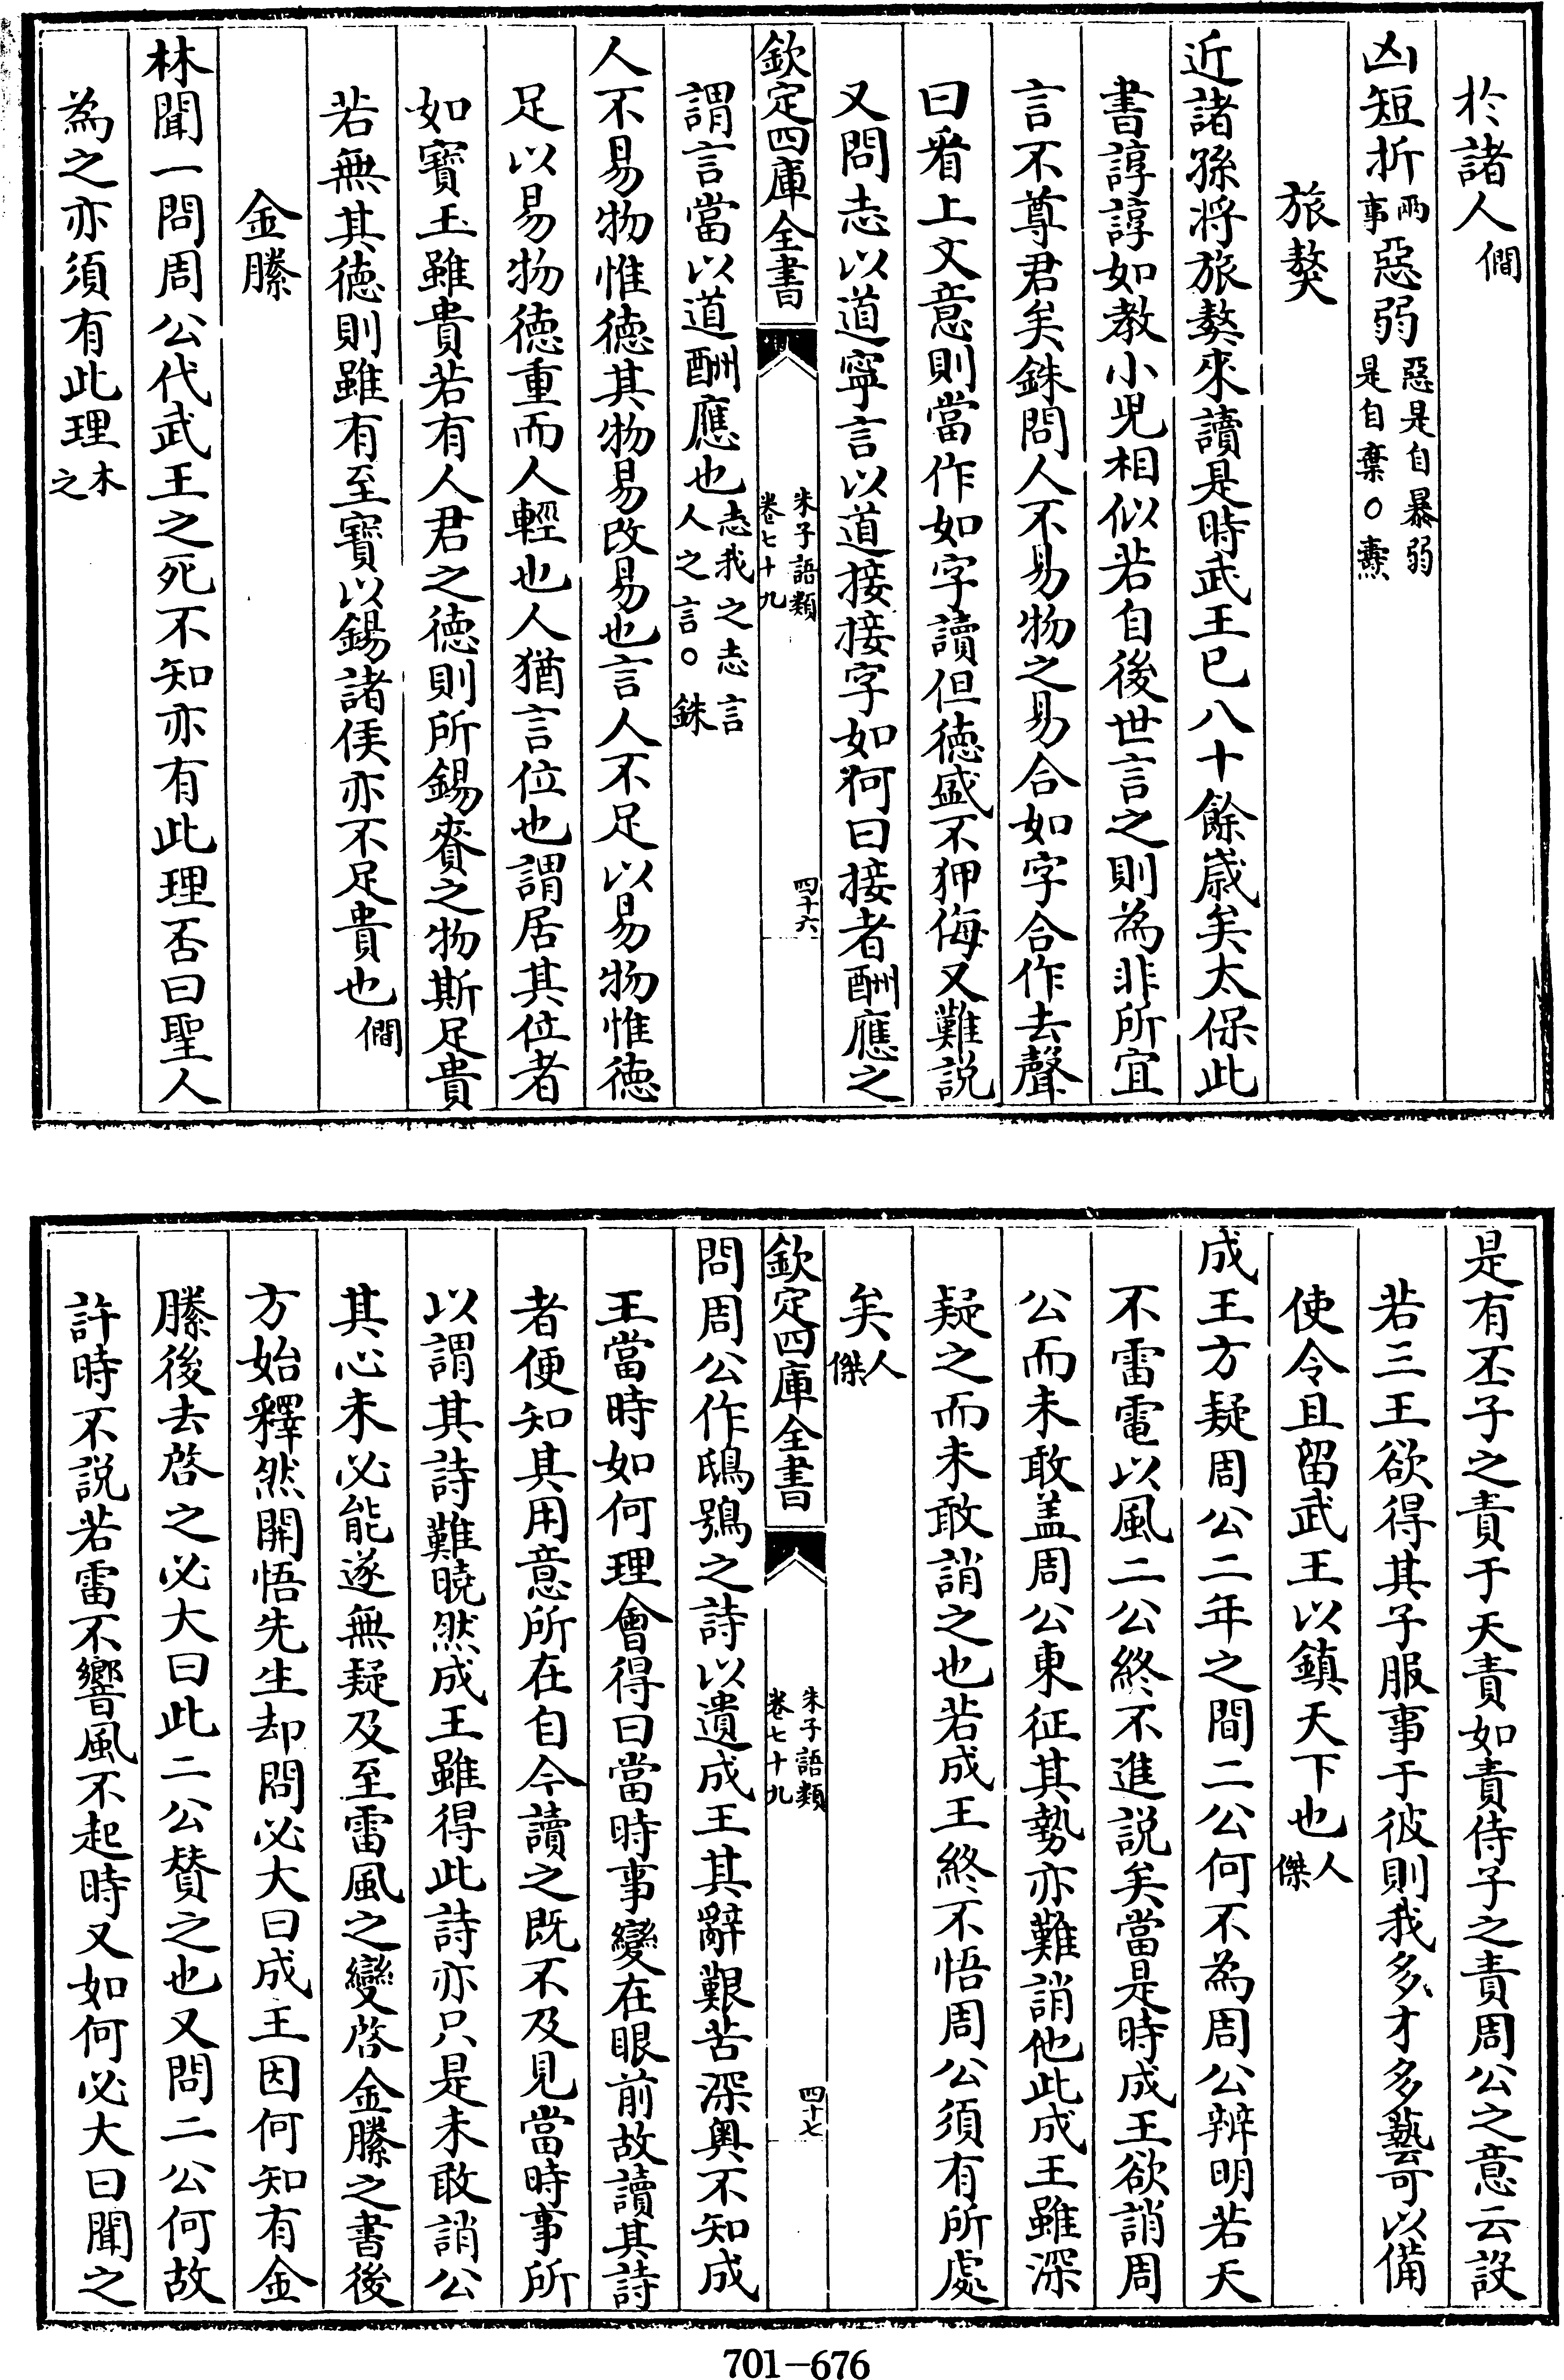 於諸人僩
凶短折兩事惡弱惡是自暴弱是自棄○燾
旅獒
近諸孫將旅獒來讀是時武王已八十餘歳矣太保此
書諄諄如教小兒相似若自後世言之則為非所宜
言不尊君矣銖問人不易物之易合如字合作去聲
曰看上文意則當作如字讀但徳盛不狎侮又難説
又問志以道寧言以道接接字如何曰接者酬應之
欽定四庫全書 朱子語類卷七十九 四十六
謂言當以道酬應也志我之志言人之言○銖
人不易物惟徳其物易改易也言人不足以易物惟徳
足以易物徳重而人輕也人猶言位也謂居其位者
如寶玉雖貴若有人君之徳則所錫賚之物斯足貴
若無其徳則雖有至寶以錫諸侯亦不足貴也僩
金縢
林聞一問周公代武王之死不知亦有此理否曰聖人
為之亦須有此理木之
是有丕子之責于天責如責侍子之責周公之意云設
若三王欲得其子服事于彼則我多才多藝可以備
使令且留武王以鎮天下也人傑
成王方疑周公二年之間二公何不為周公辨明若天
不雷電以風二公終不進説矣當是時成王欲誚周
公而未敢盖周公東征其勢亦難誚他此成王雖深
疑之而未敢誚之也若成王終不悟周公須有所處
矣人傑
欽定四庫全書 朱子語類卷七十九 四十七
問周公作鴟鴞之詩以遺成王其辭艱苦深奥不知成
王當時如何理會得曰當時事變在眼前故讀其詩
者便知其用意所在自今讀之既不及見當時事所
以謂其詩難曉然成王雖得此詩亦只是未敢誚公
其心未必能遂無疑及至雷風之變啓金縢之書後
方始釋然開悟先生却問必大曰成王因何知有金
縢後去啓之必大曰此二公賛之也又問二公何故
許時不説若雷不響風不起時又如何必大曰聞之
701-676